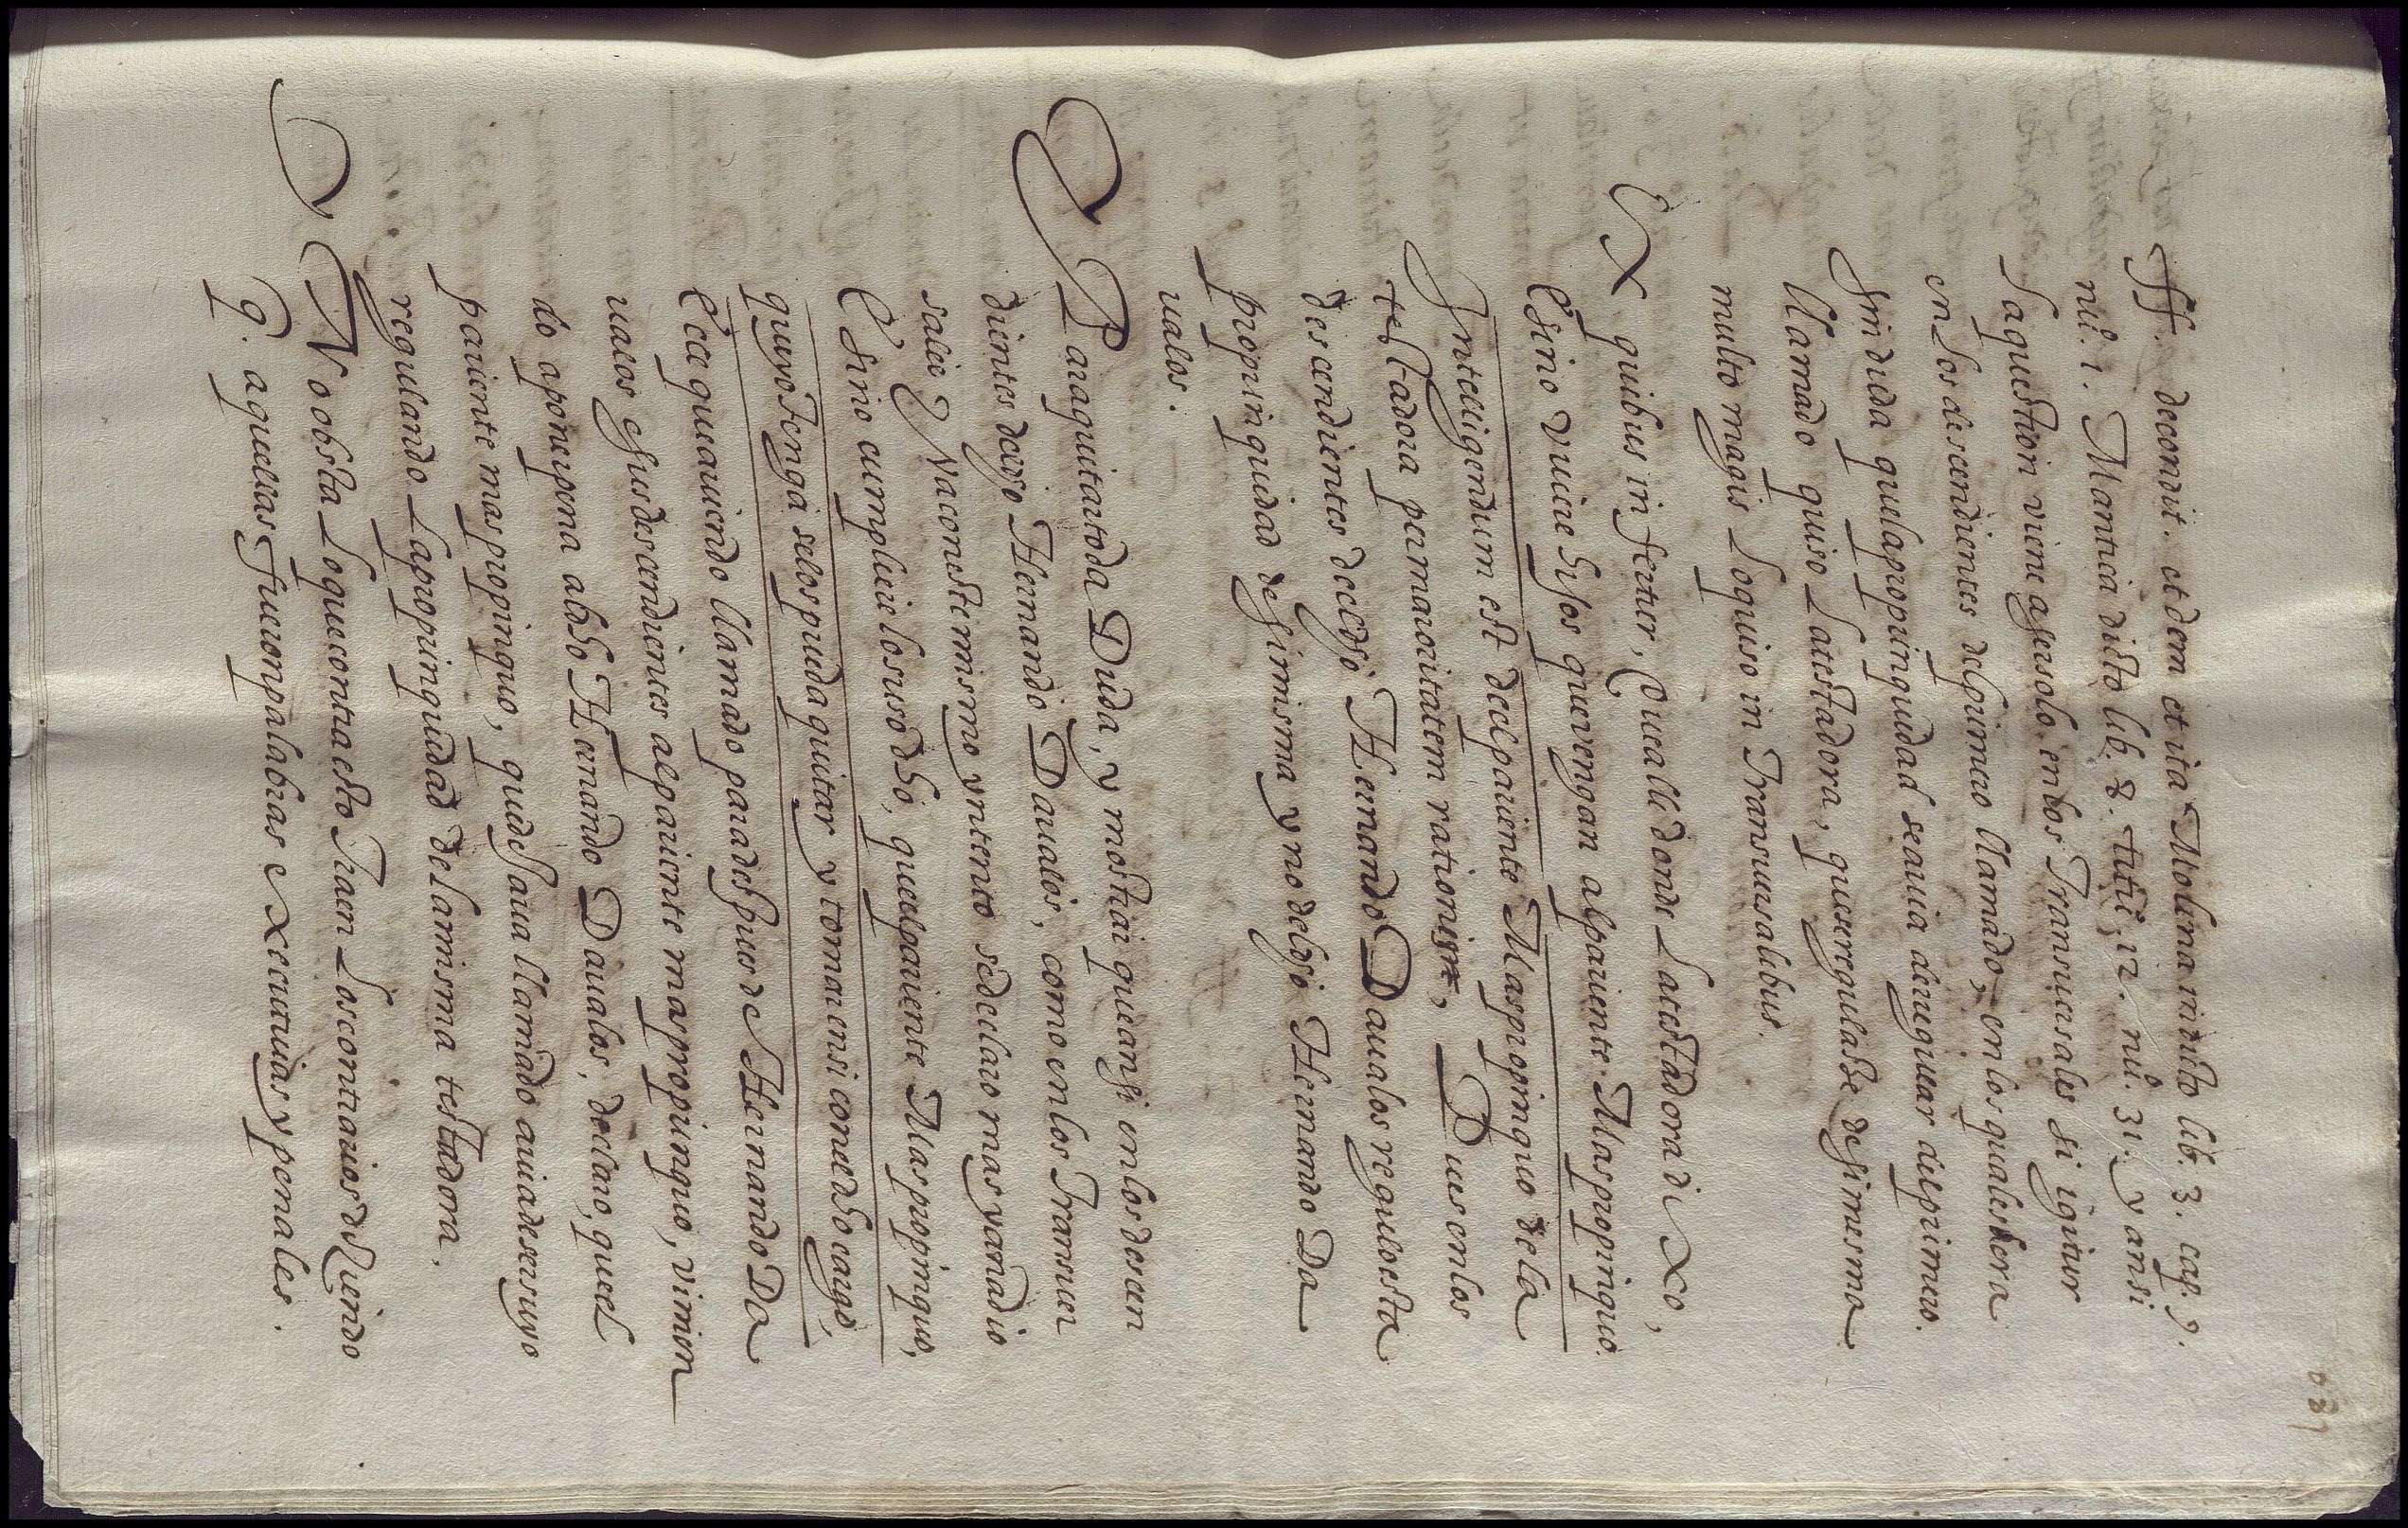 ff. de condit. et dem et ita Molina in dicto lib. 3. cap. 9.
nũ. 1. Mantica dicto lib. 8. titũ. 12. nũ. 31. y ansi
la question viene a ser solo en los Transuersales si igitur
en los descendientes del primero llamado, en los quales era
sin duda que la propinquidad se auia de regular del primero
llamado quiso la testadora, que se regulasse de si mesma
multo magis lo quiso in Transuersalibus.
Ex quibus infertur, Que alli donde la testadora dixo,
E si no vuiere hijos que vengan al pariente Mas propinquo
Intelligendum est del pariente Mas propinquo de la
testadora per maioritatem rationis, Pues en los
descendientes del dicho Hernando Daualos regulo esta
propinquidad de si misma y no del dicho Hernando Da
ualos.
Para quitar toda Duda, y mostrar que ansi en los decen
dientes del dicho Hernando Daualos, como en los Transuer
sales Vna con el mismo yntento se declaro mas yanadio
E si no cumpliere lo suso dicho, que el pariente Mas propinquo,
que yo tenga se los pueda quitar y tomar en si con el dicho cargo,
Ecce que auiendo llamado para despues de Hernando Da
ualos y sus descendientes al pariente mas propinquo, vinien
do a poner pena al dicho Hernando Daualos, declaro, que el
pariente mas propinquo, que dessaua llamado auia de ser suyo
regulando la propinquidad de la misma testadora.
No obsta lo que contra esto traen los contrarios diciendo
q. aquellas fueron palabras executiuas y penales.
189